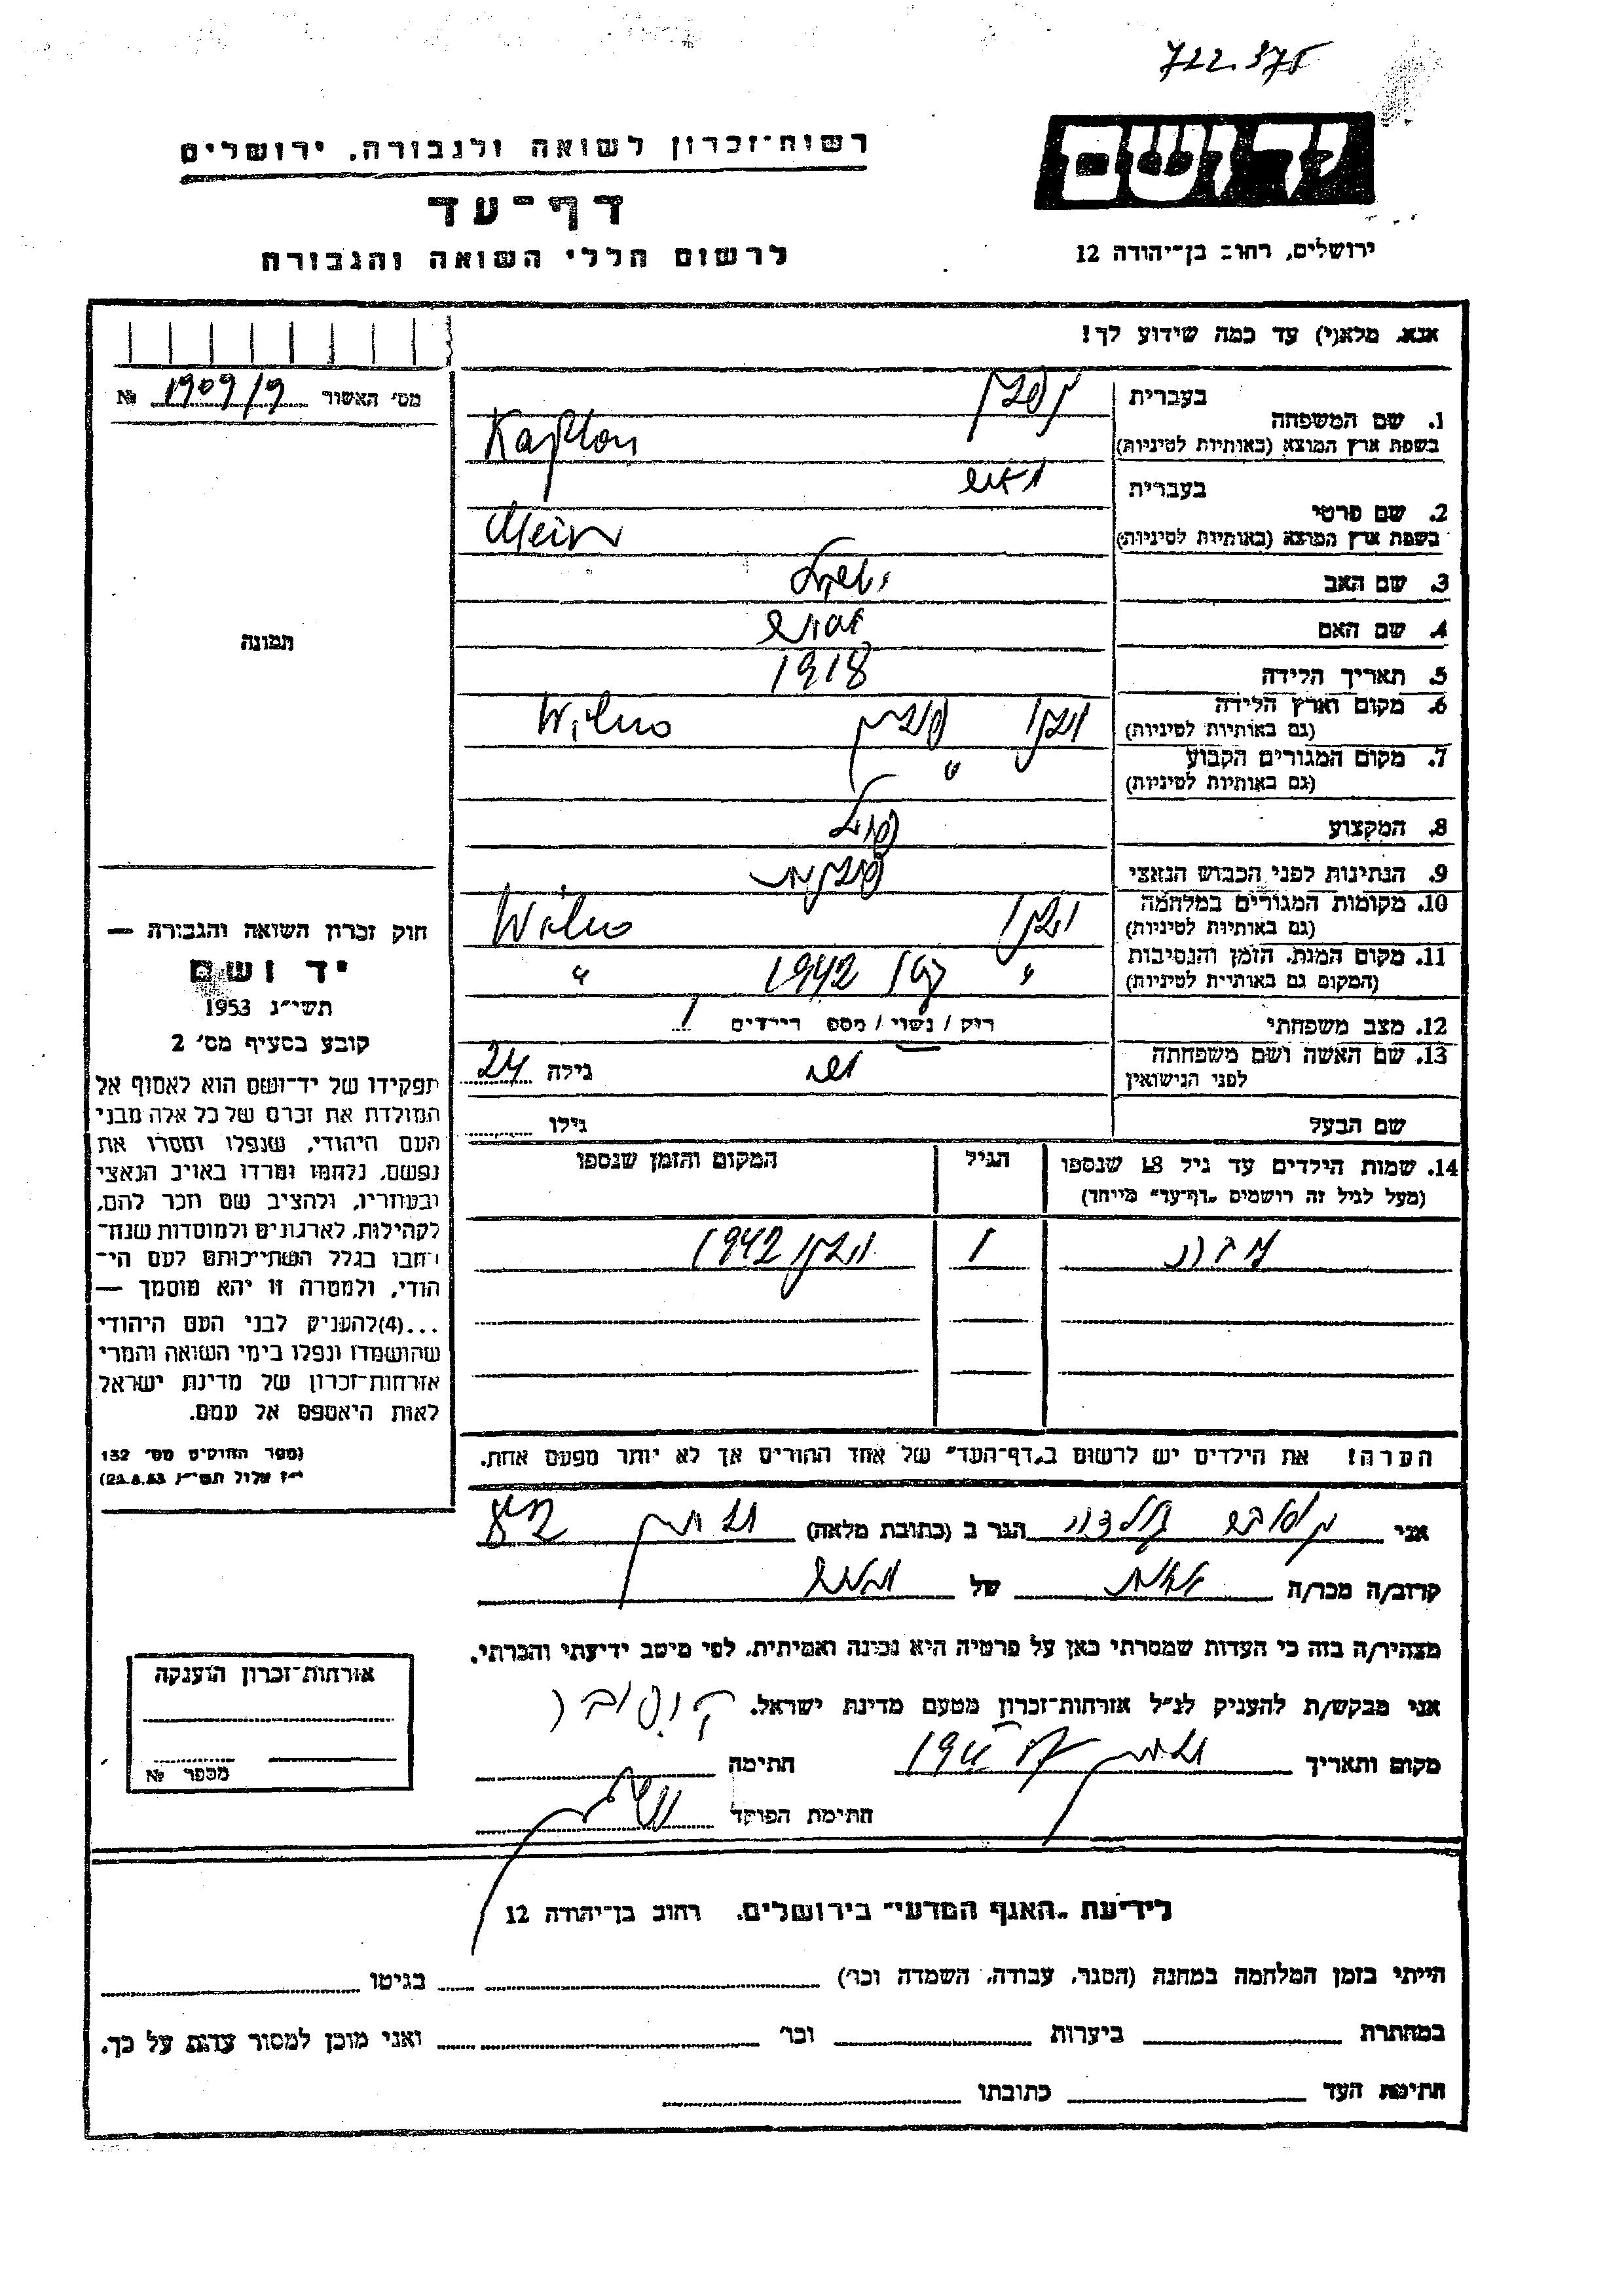 722.375
יד ושם
רשות־זכרון לשואה ולגבורה, ירושלים
דף־עד
לרשום חללי השואה והגבורה
ירושלים, רחוב בן־יהודה 12
אנא, מלא(י) עד כמה שידוע לך!
מס׳ האשור 1909/9 №
1. שם המשפחה בעברית קפלן
בשפת ארץ המוצא (באותיות לטיניות) Kaplan
2. שם פרטי בעברית
בשפת ארץ המוצא (באותיות לטיניות) Meir
3. שם האב
4. שם האם
5. תאריך הלידה 1918
6. מקום וארץ הלידה וילנה פולין Wilno
(גם באותיות לטיניות)
7. מקום המגורים הקבוע "
(גם באותיות לטיניות)
8. המקצוע
9. הנתינות לפני הכבוש הנאצי פולנית
10. מקומות המגורים במלחמה Wilno
(גם באותיות לטיניות)
11. מקום המות, הזמן והנסיבות " 1942 "
(המקום גם באותיות לטיניות)
12. מצב משפחתי רוק / נשוי / מספ׳ הילדים 1
13. שם האשה ושם משפחתה לפני הנישואין גילה 24
שם הבעל גילו
14. שמות הילדים עד גיל 18 שנספו הגיל המקום והזמן שנספו
(מעל לגיל זה רושמים „דף־עד״ מייחד)
1 1942
הערה! את הילדים יש לרשום ב„דף־העד״ של אחד ההורים אך לא יותר מפעם אחת.
תמונה
חוק זכרון השואה והגבורה —
יד ושם
תשי״ג 1953
קובע בסעיף מס׳ 2
תפקידו של יד־ושם הוא לאסוף אל
המולדת את זכרם של כל אלה מבני
העם היהודי, שנפלו ומסרו את
נפשם, נלחמו ומרדו באויב הנאצי
ובעוזריו, ולהציב שם וזכר להם,
לקהילות, לארגונים ולמוסדות שנח־
רבו בגלל השתייכותם לעם הי־
הודי, ולמטרה זו יהא מוסמך —
...(4)להעניק לבני העם היהודי
שהושמדו ונפלו בימי השואה והמרי
אזרחות־זכרון של מדינת ישראל
לאות היאספם אל עמם.
(ספר החוקים מס׳ 132
י״ז אלול תשי״ג 28.8.53)
אני הגר ב (כתובת מלאה)
קרוב/ה מכר/ה של
מצהיר/ה בזה כי העדות שמסרתי כאן על פרטיה היא נכונה ואמיתית, לפי מיטב ידיעתי והכרתי.
אני מבקש/ת להעניק לנ״ל אזרחות־זכרון מטעם מדינת ישראל.
מקום ותאריך חתימה
חתימת הפוקד
אזרחות־זכרון הוענקה
מספר №
לידיעת „האגף המדעי״ בירושלים, רחוב בן־יהודה 12
הייתי בזמן המלחמה במחנה (הסגר, עבודה, השמדה וכו׳) בגיטו
במחתרת ביערות וכו׳ ואני מוכן למסור עדות על כך.
חתימת העד כתובתו